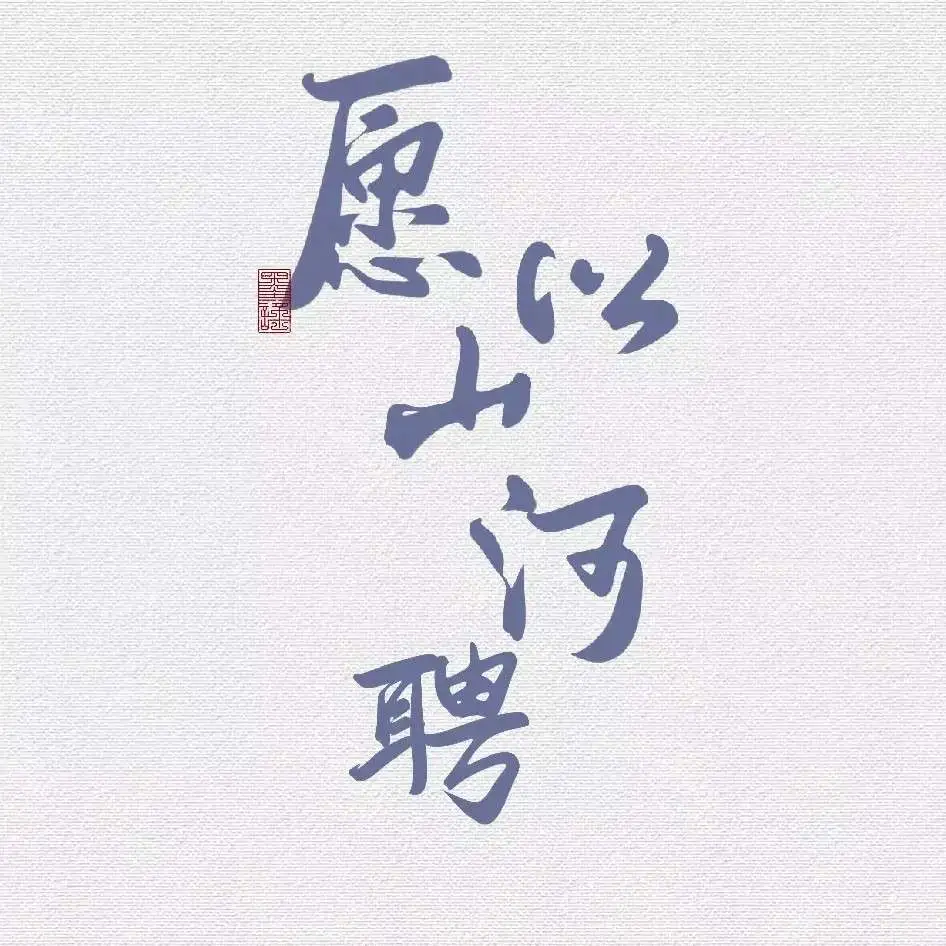 愿以山河聘